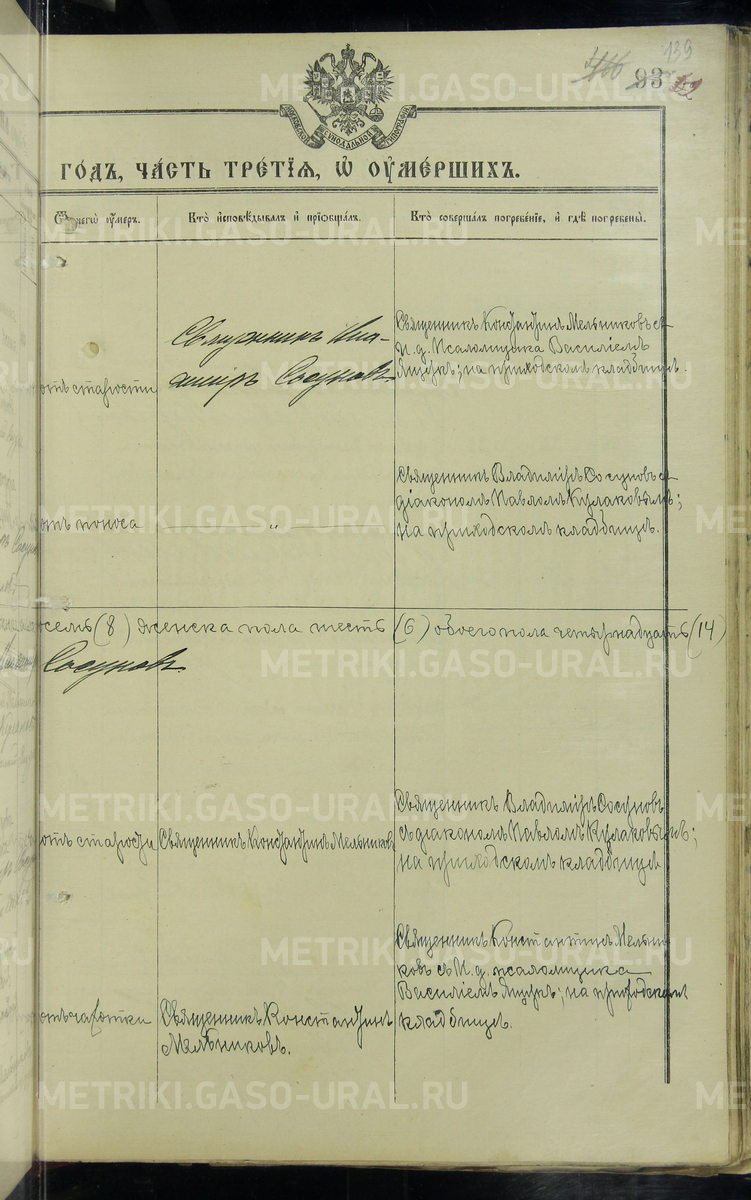 139
466
93
МОСКОВСКОЙ СѴНОДАЛЬНОЙ ТИПОГРАФІИ
ГОДЪ, ЧАСТЬ ТРЕТІЯ, Ѡ ОУМЕРШИХЪ.
Ѿ чегѡ оумеръ.
Кто исповѣдывалъ и пріобщалъ.
Кто совершалъ погребеніе, и гдѣ погребены.
отъ старости
Священникъ Вла-
диміръ Сосуновъ
Священникъ Константинъ Мельниковъ съ
И. д. псаломщика Василіемъ
Яцукъ; на приходскомъ кладбищѣ.
отъ поноса
"
Священникъ Владиміръ Сосуновъ съ
діакономъ Павломъ Кулаковымъ;
на приходскомъ кладбищѣ.
осемь (8) женска пола шесть (6) обоего пола четырнадцать (14)
Сосуновъ
отъ старости
Священникъ Константинъ Мельниковъ
Священникъ Владиміръ Сосуновъ
съ діакономъ Павломъ Кулаковымъ;
на приходскомъ кладбищѣ
отъ чахотки
Священникъ Константинъ
Мельниковъ.
Священникъ Константинъ Мельни-
ковъ съ И. д. псаломщика
Василіемъ Яцукъ; на приходскомъ
кладбищѣ.
METRIKI.GASO-URAL.RU